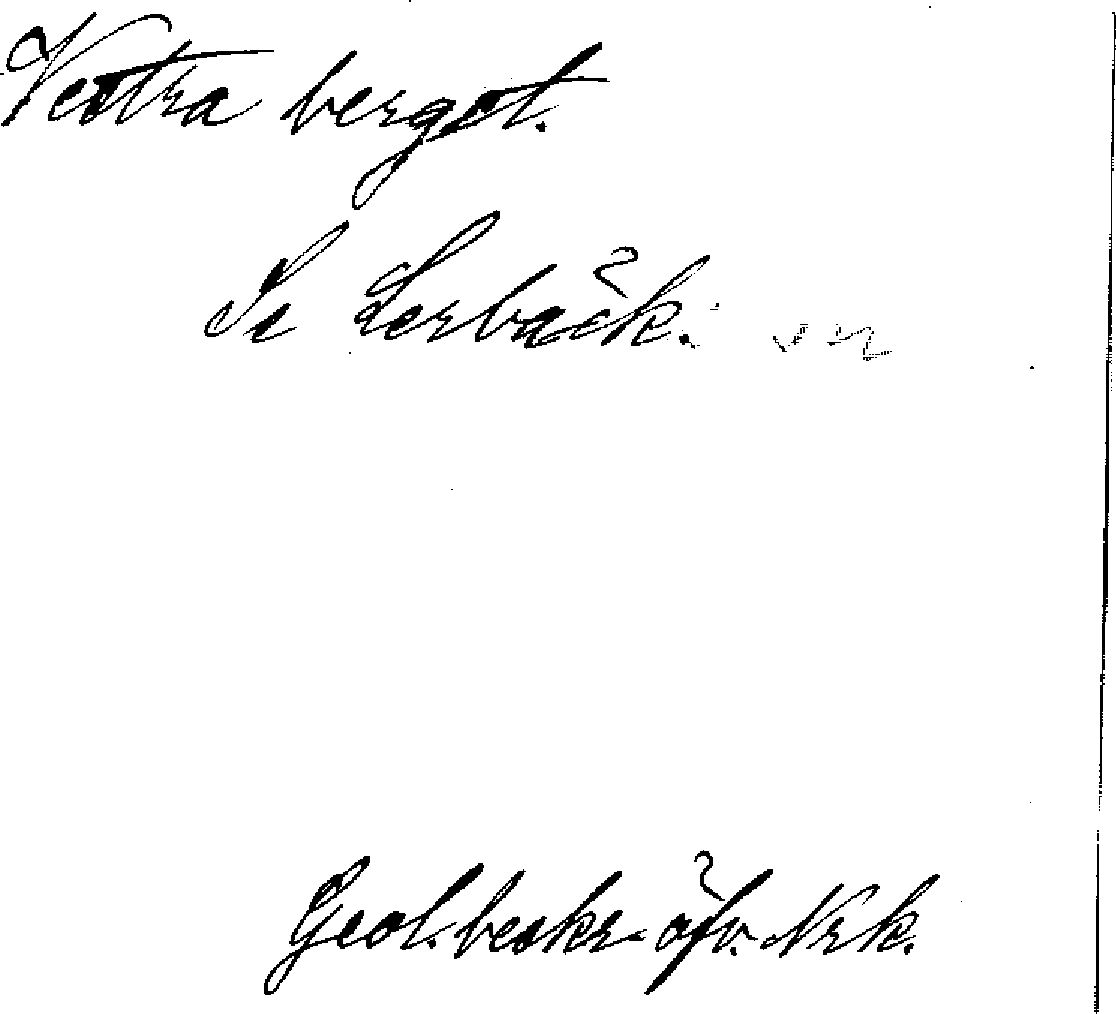 Vestra bergst.
Se Lerbäck.
Geol. beskr. öfv. Nrk.